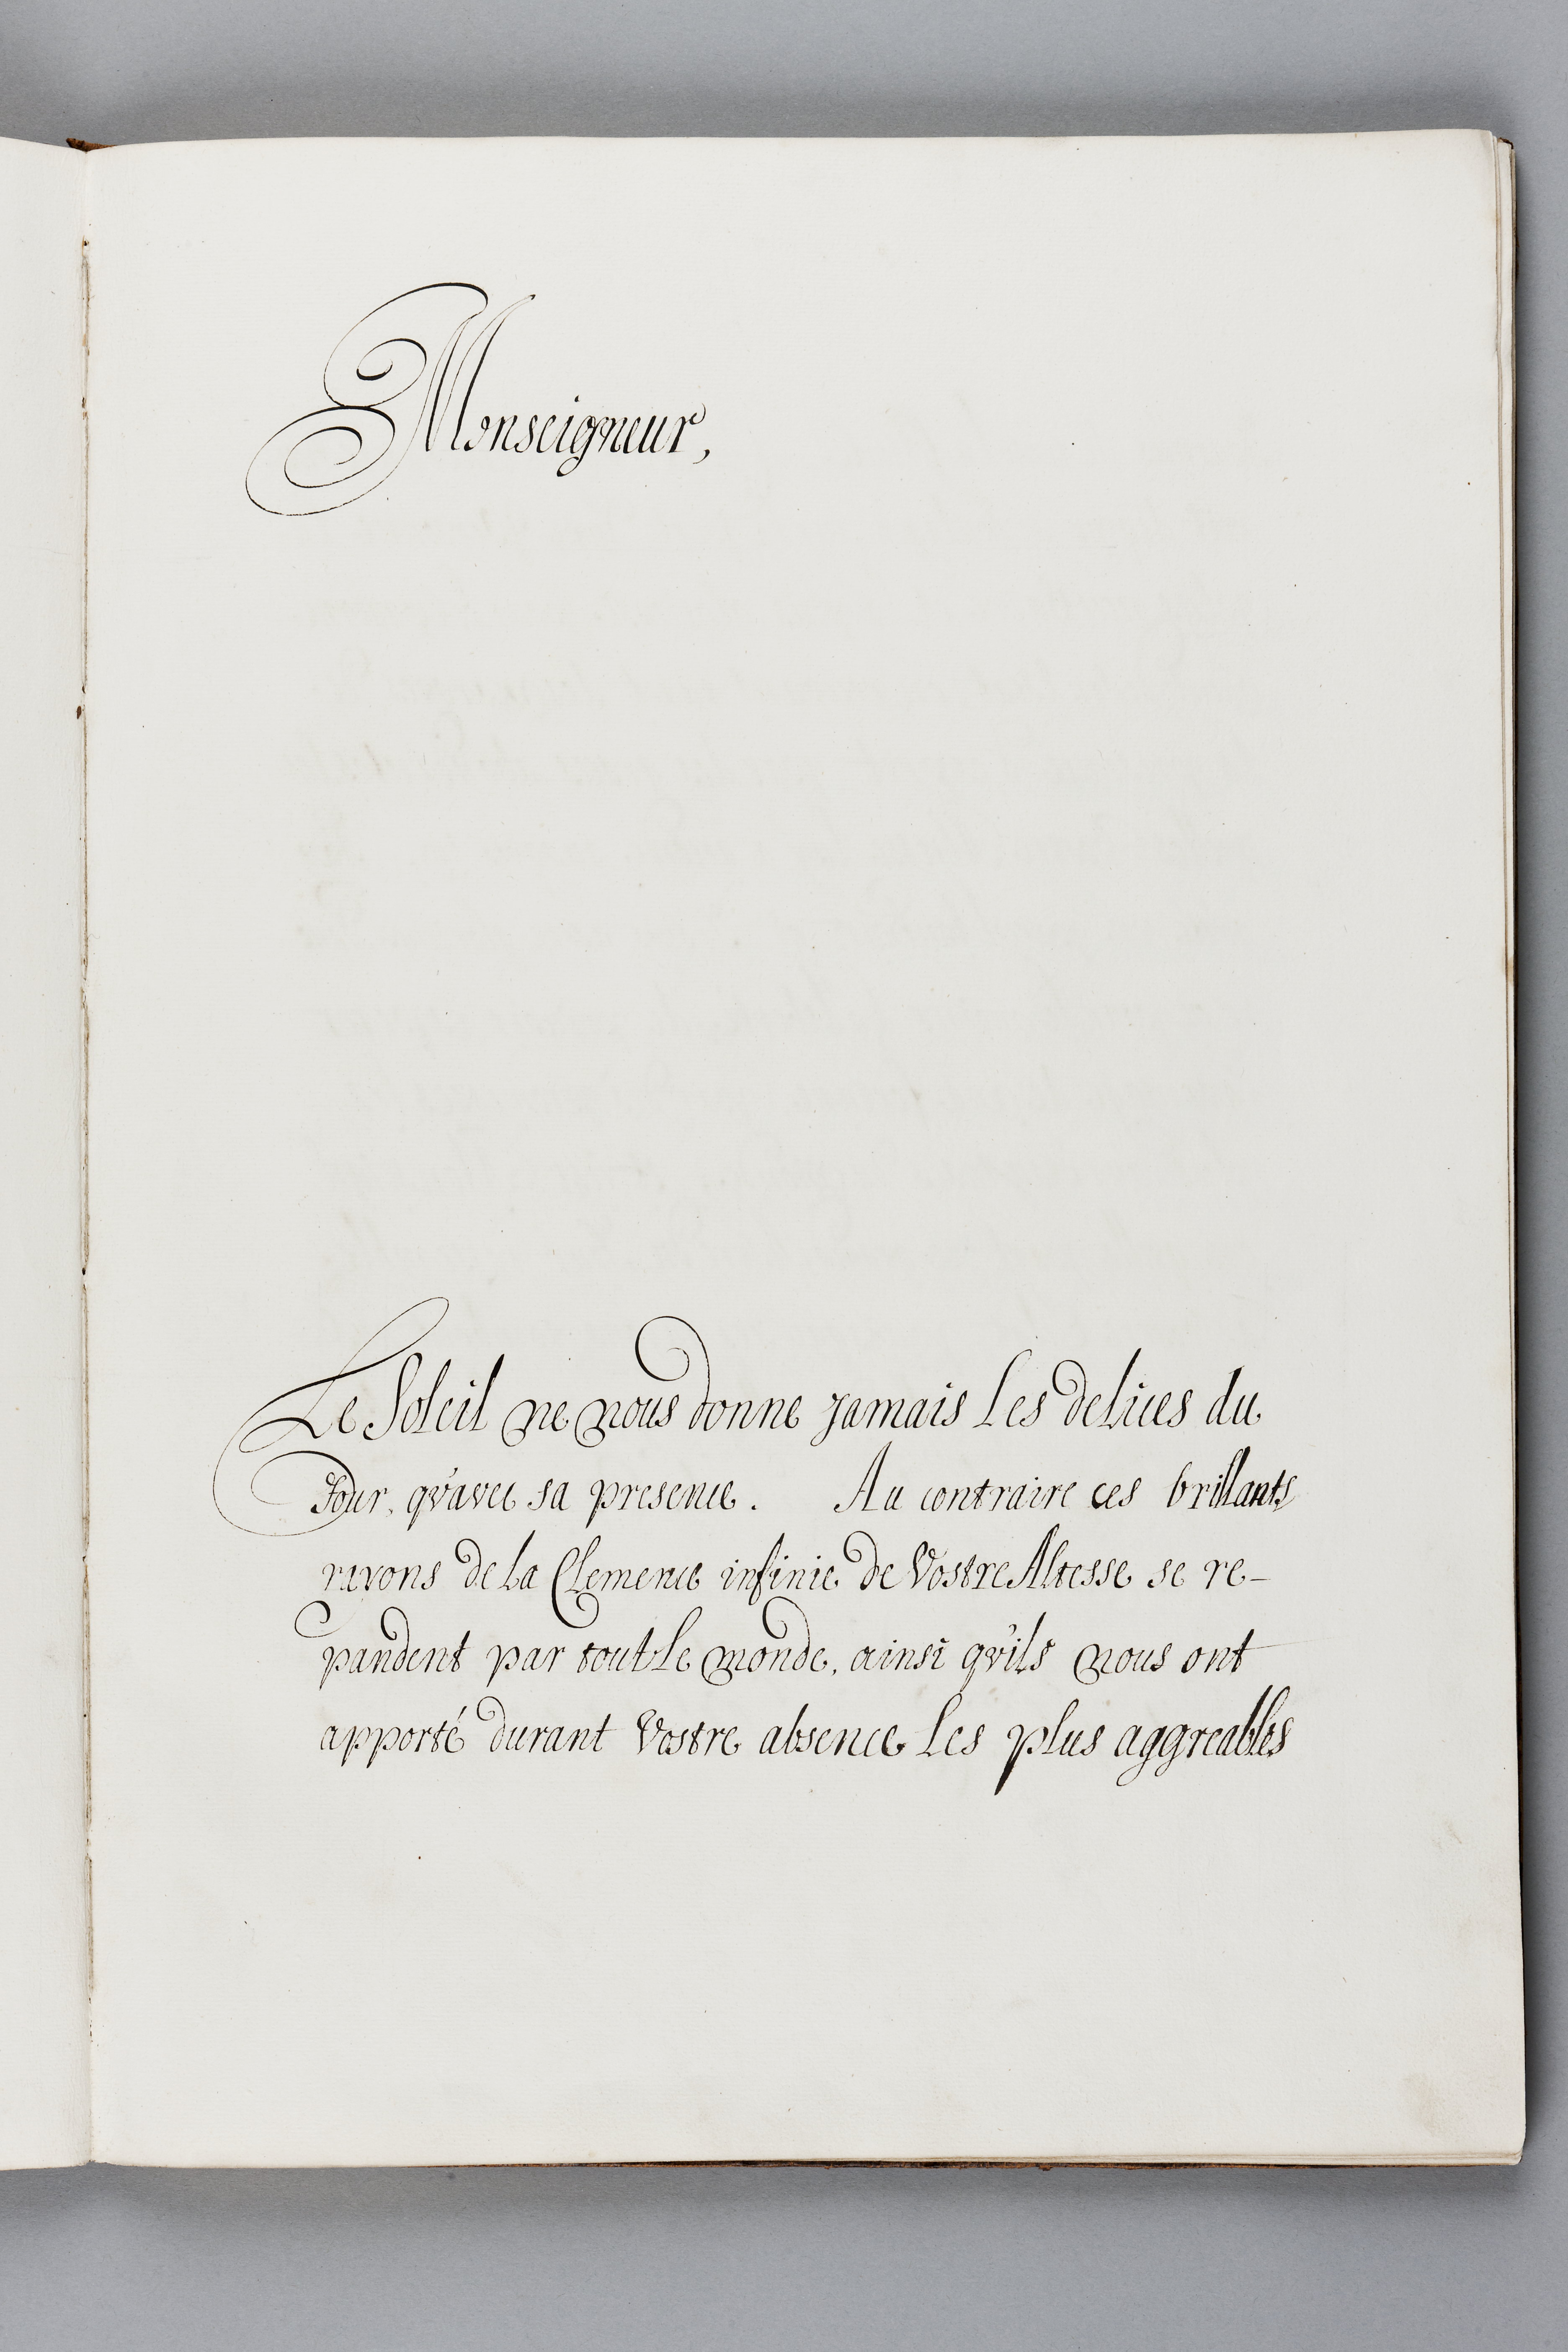 Monseigneur,
Le Soleil ne nous donne jamais Les delices du
Jour, qu'avec sa presence. Au contraire ces brillants
rayons de La Clemence infinie de Vostre Altesse se re-
pandent par tout Le monde, ainsi qu'ils nous ont
apporté durant Vostre absence Les plus aggreables